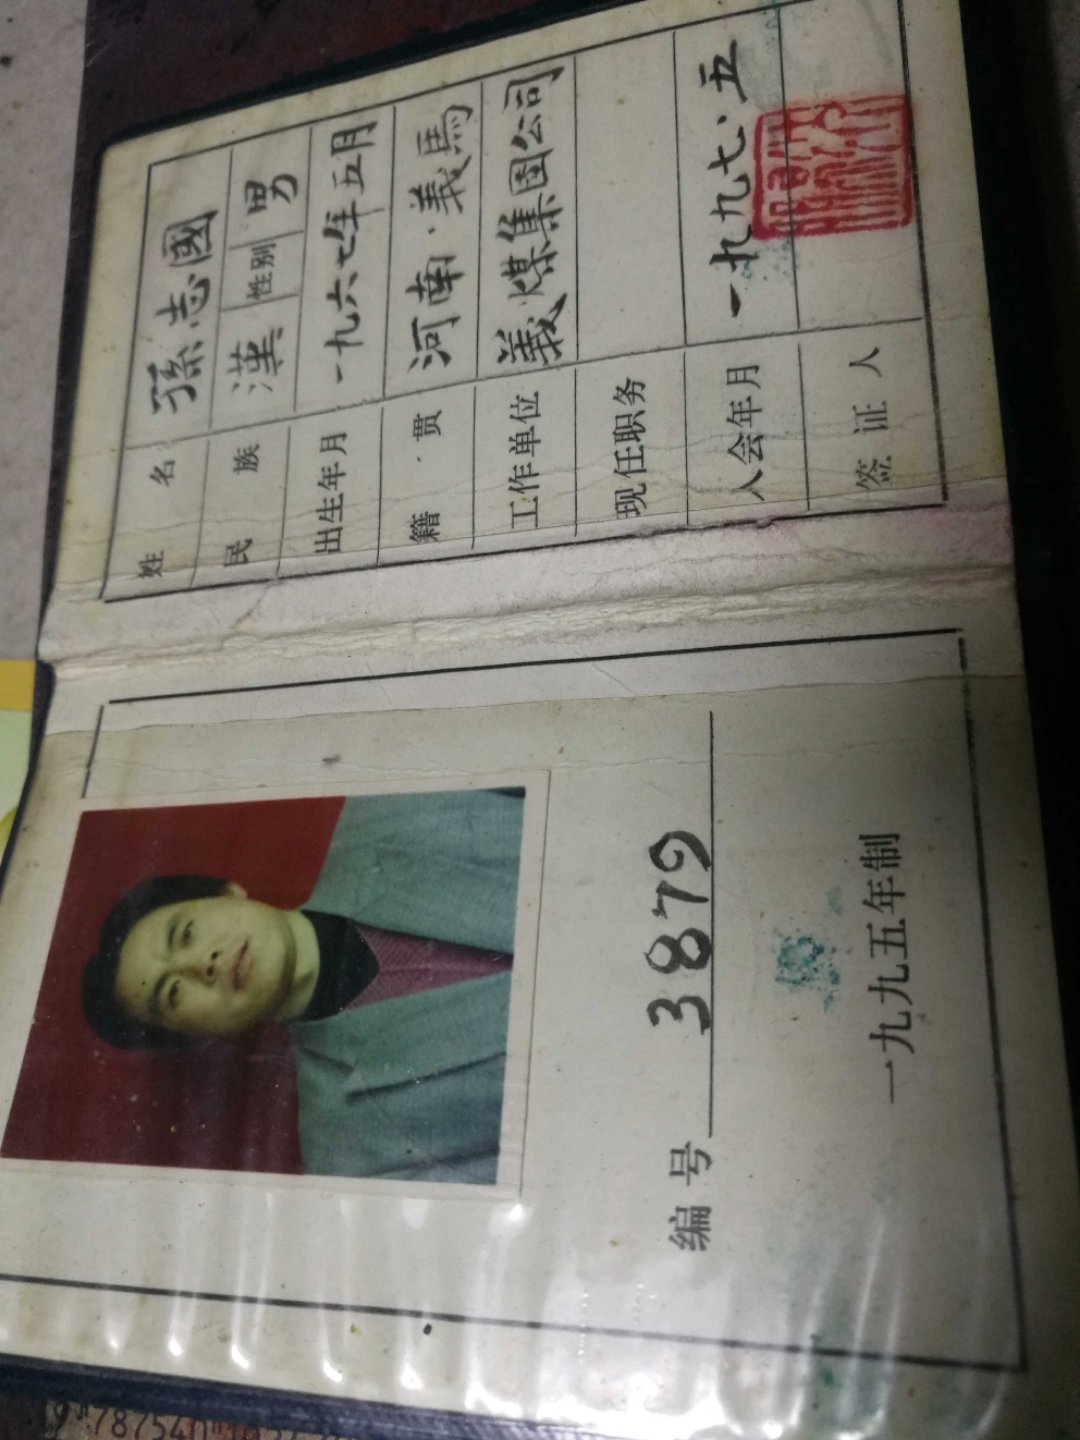 编号 3879
一九九五年制
姓名 孫志國
民族 漢 性别 男
出生年月 一九六七年五月
籍贯 河南·義馬
工作单位 義煤集团公司
现任职务
入会年月 一九九七.五
签证人